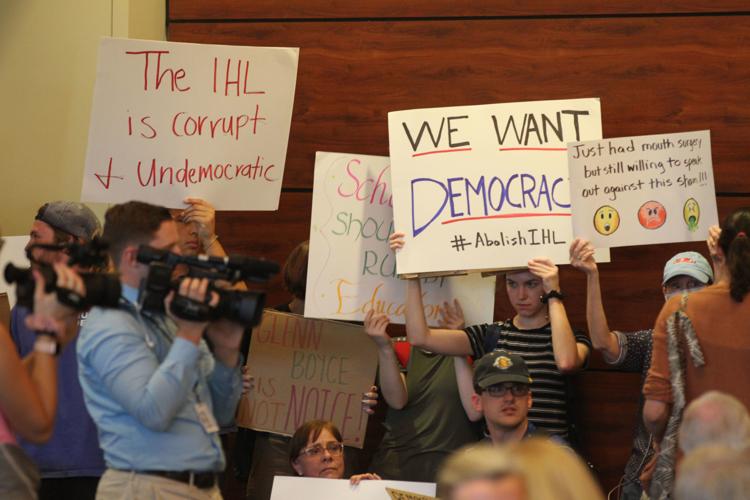 The IHL
is corrupt
& Undemocratic
WE WANT
DEMOCRAC
#AbolishIHL
Just had mouth surgery
but still willing to speak
out against this sham!!!
GLENN
BOYCE
IS
NOT NOICE!